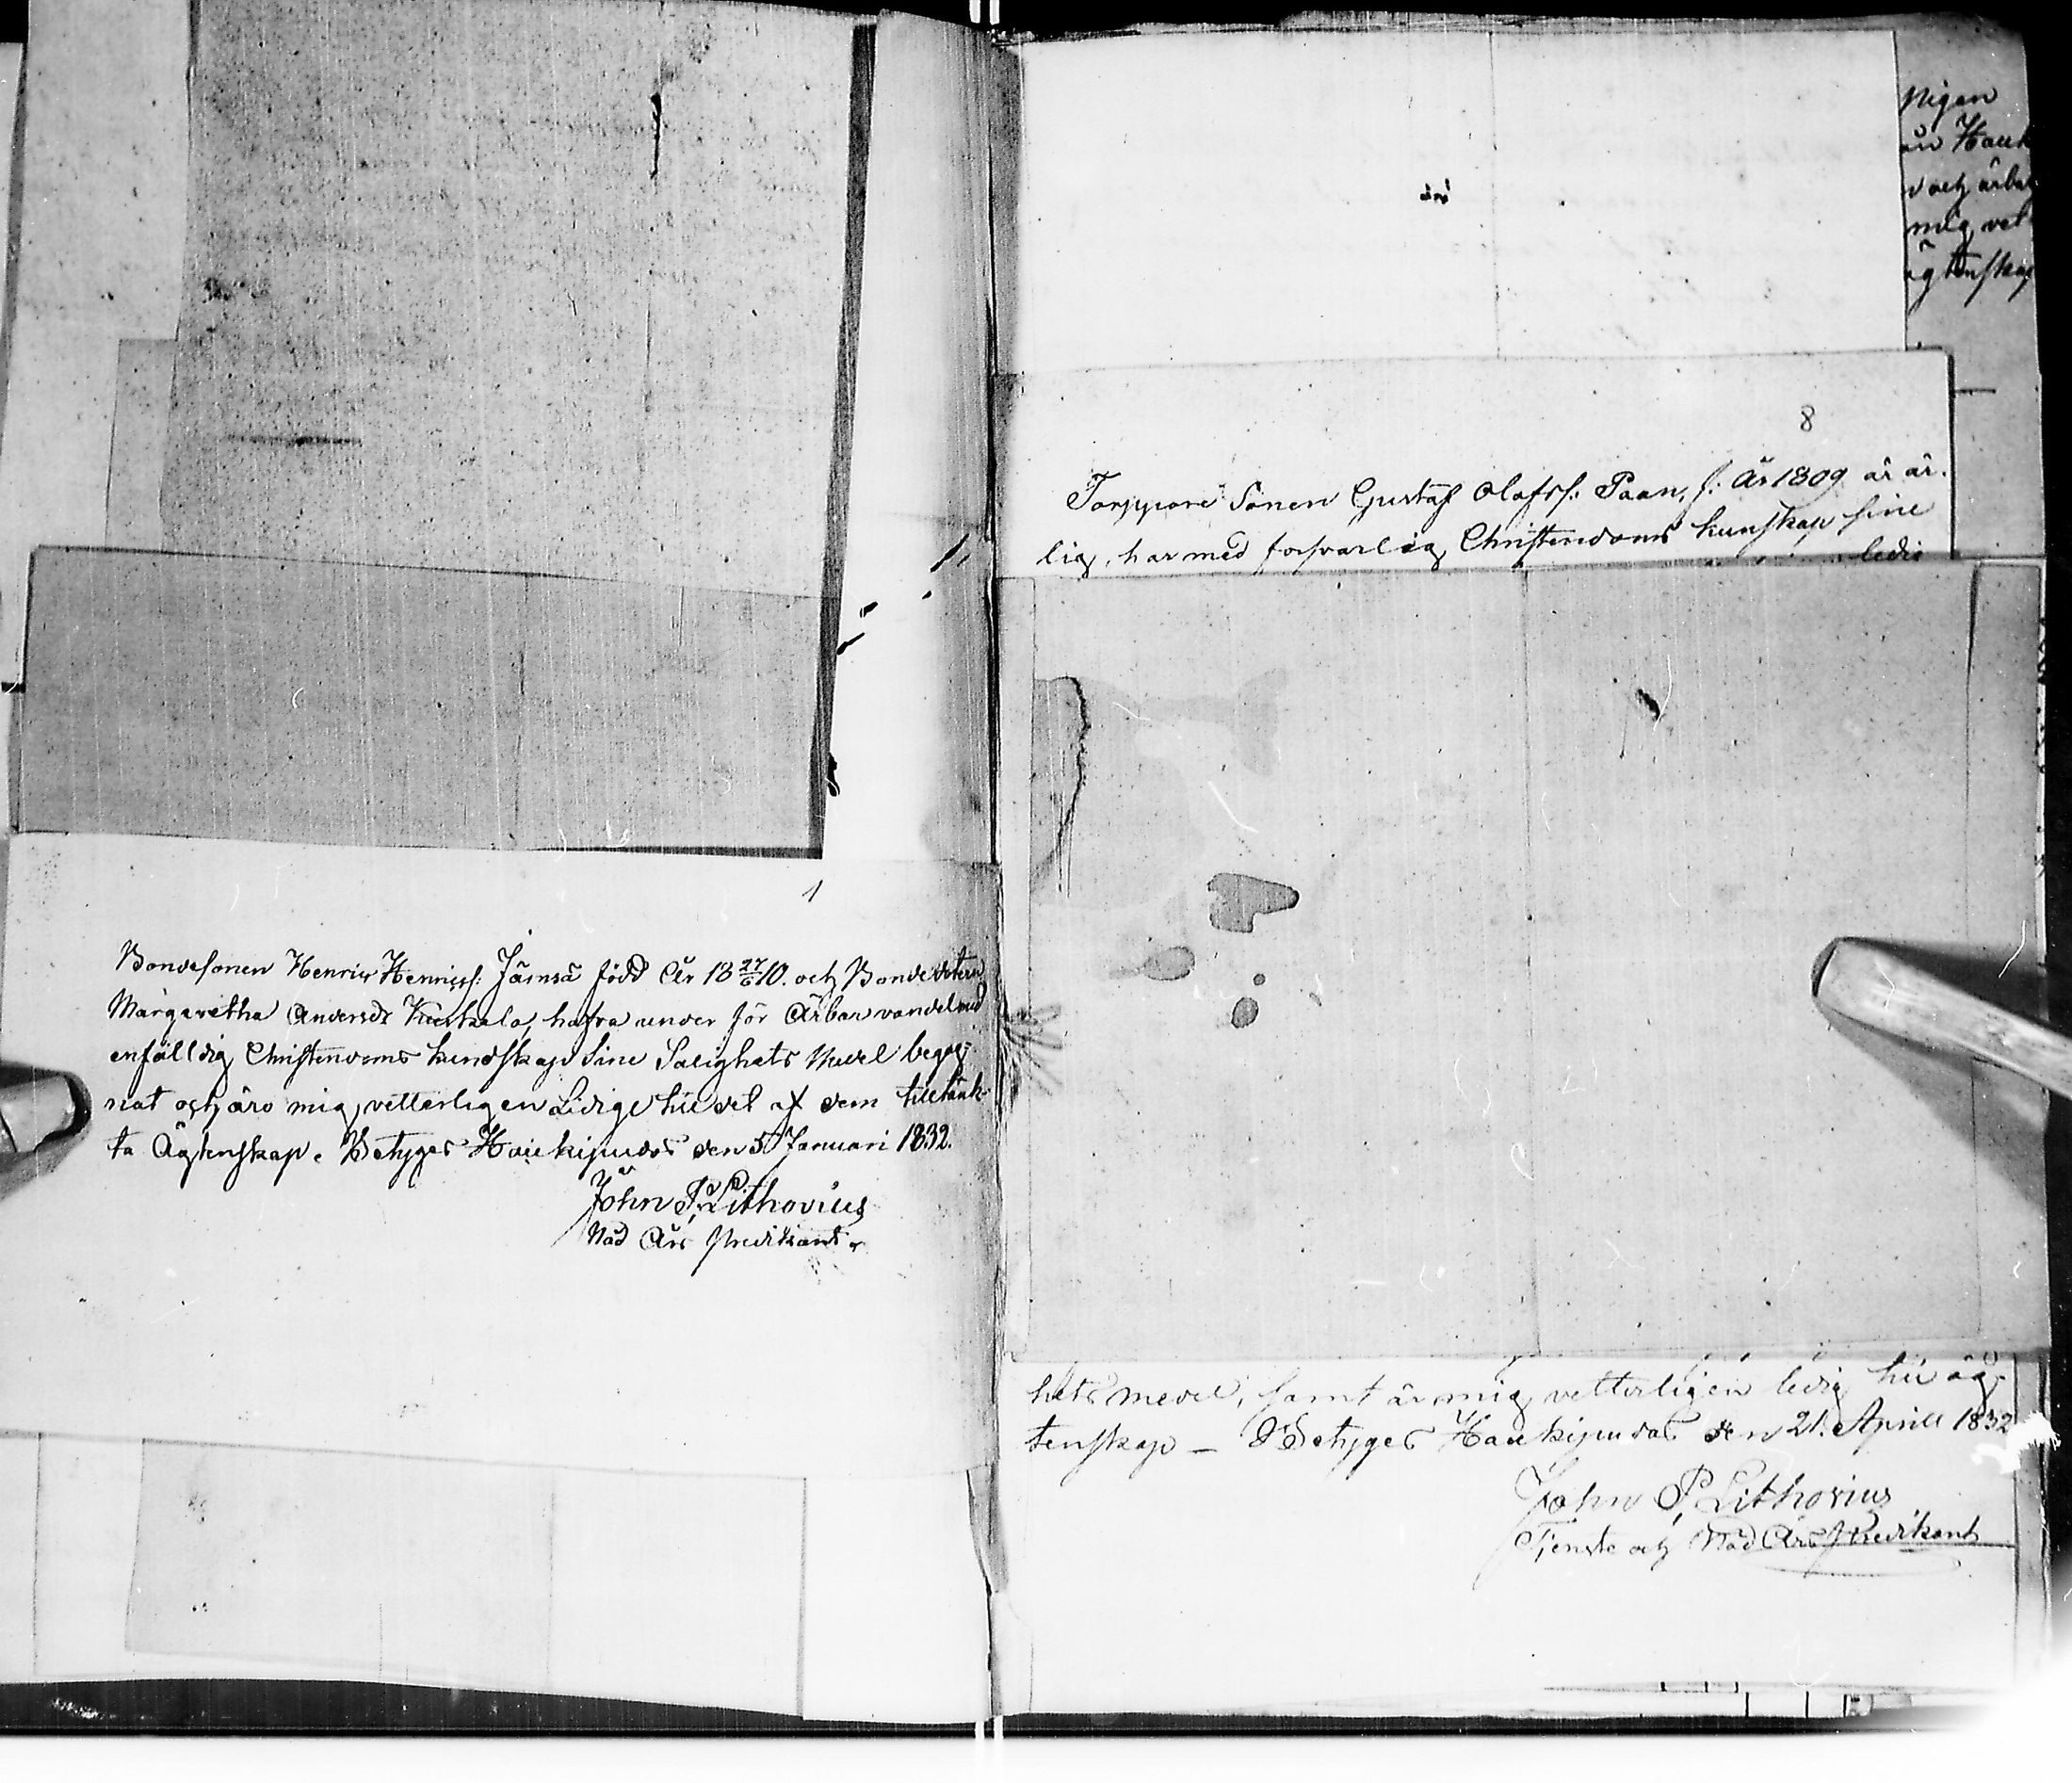 1
Bondesonen Henric Henricss: Jämsä född År 18 27/6 10. och Bondedottern
Margaretha Andersdr Kurkela, hafva under för Ärbar vandel med
enfälldig Christendoms kundskap Sine Salighets Medel begag-
nat och äro mig vetterligen Lidige til det af dem tilltänk-
ta Ägtenskap. Betyges Haukipudas den 5 Januari 1832.
John P. Lithovius
Nåd Års Predikant.
8
Torppare Sonen Gustaf Olofss: Paan, f: År 1809 är är-
lig, har med forsvarlig Christendoms kunskap sine
ledig
hets medel, samt är mig vetterligen ledig til äg-
tenskap – Betyges Haukipudas den 21. Aprill 1832
John P Lithovius
Tjenste och Nåd Års Predikant
Pigan
Hauk
och ärba
mig vet
ägtenskap